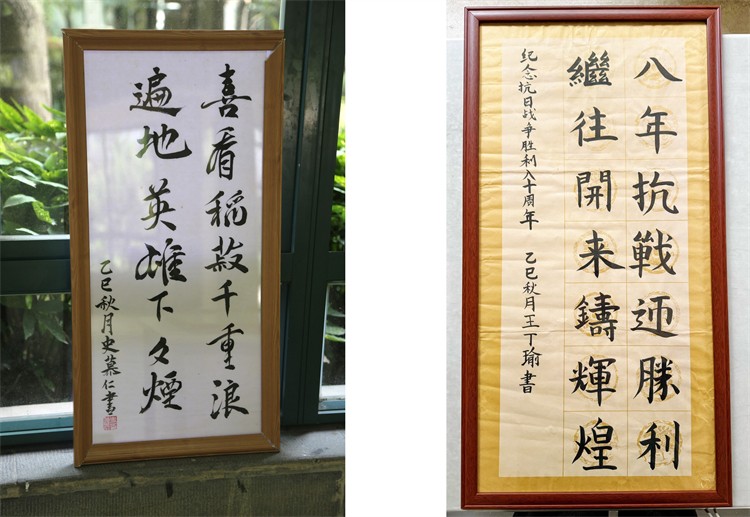 喜看稻菽千重浪
遍地英雄下夕煙
乙巳秋月史慕仁書
八年抗戰迎勝利
繼往開来鑄輝煌
纪念抗日战争胜利八十周年 乙巳秋月王丁瑜書